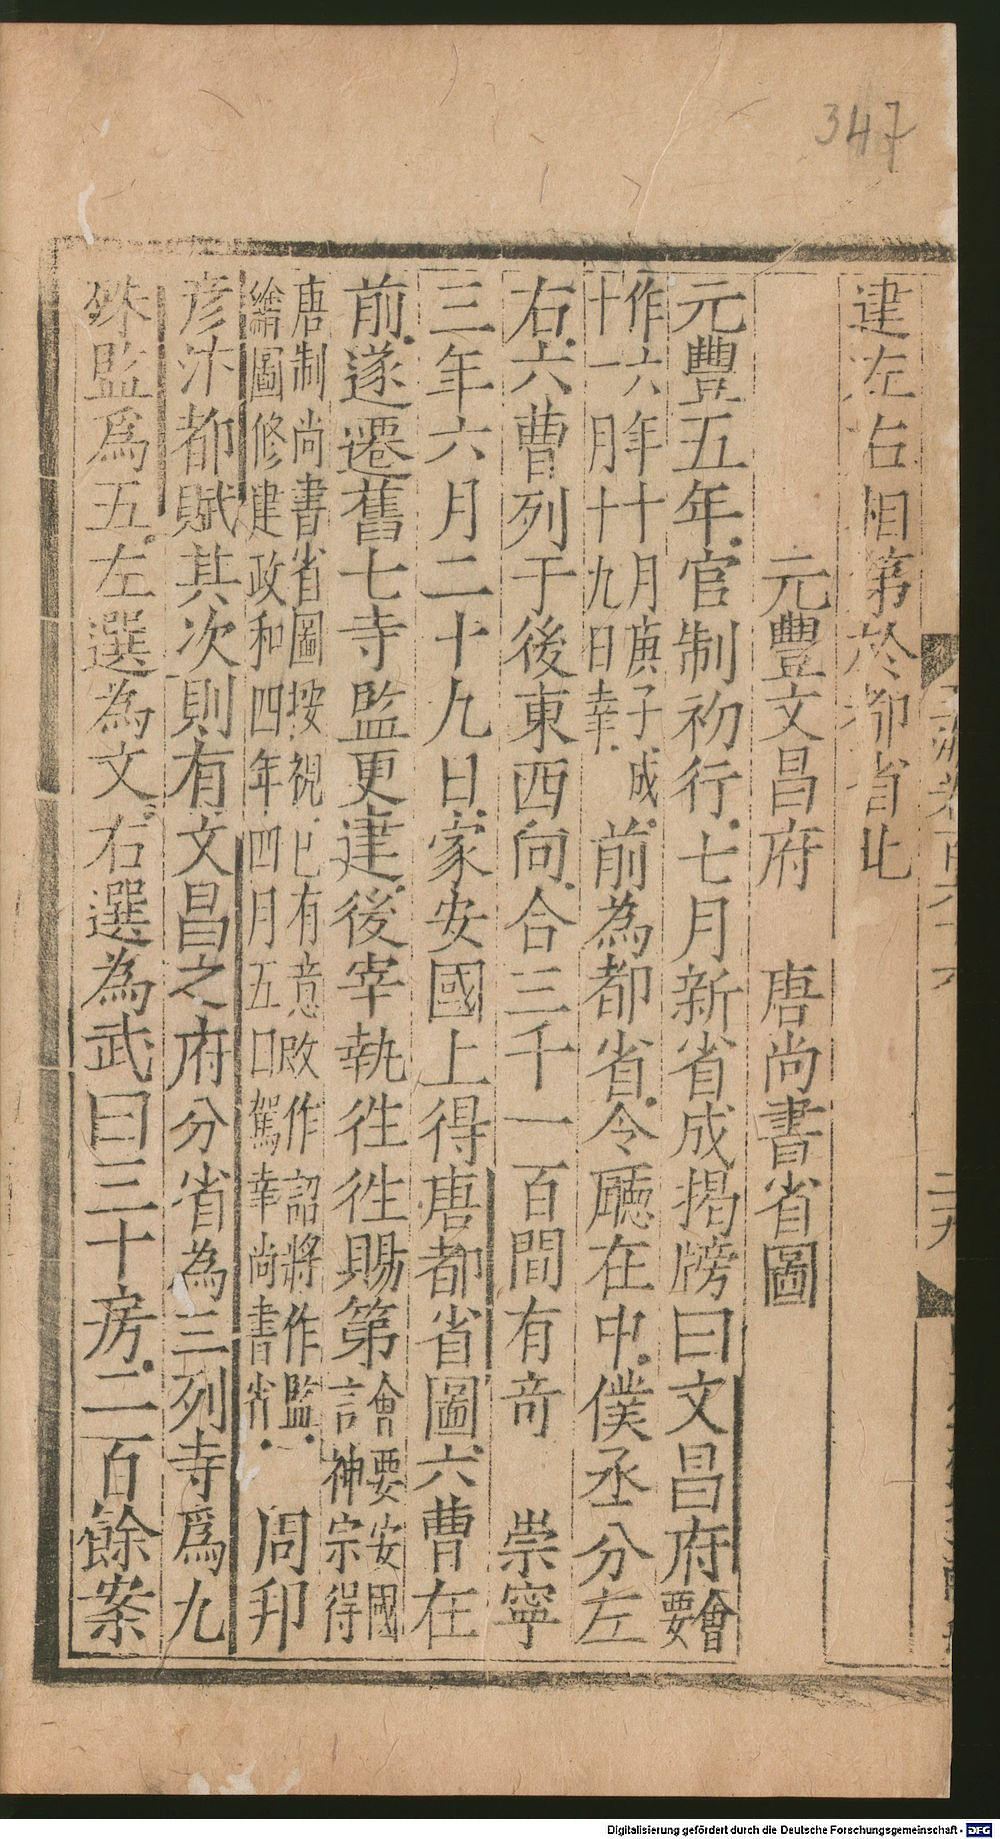 347
建左右相第於都省北
元豐文昌府　唐尚書省圖
元豐五年官制初行七月新省成揭牓曰文昌府會要
作六年十月庚子成
十一月十九日幸
前為都省令廳在中僕丞分左
右六曹列于後東西向合三千一百間有奇　崇寧
三年六月二十九日家安國上得唐都省圖六曹在
前遂遷舊七寺監更建後宰執徃徃賜第
會要安國
言神宗得
唐制尚書省圖按視已有意改作詔將作監
繪圖修建政和四年四月五日駕幸尚書省
周邦
彦汴都賦其次則有文昌之府分省為三列寺爲九
殊監爲五左選為文右選為武曰三十房二百餘案
二九
Digitalisierung gefördert durch die Deutsche Forschungsgemeinschaft - DFG